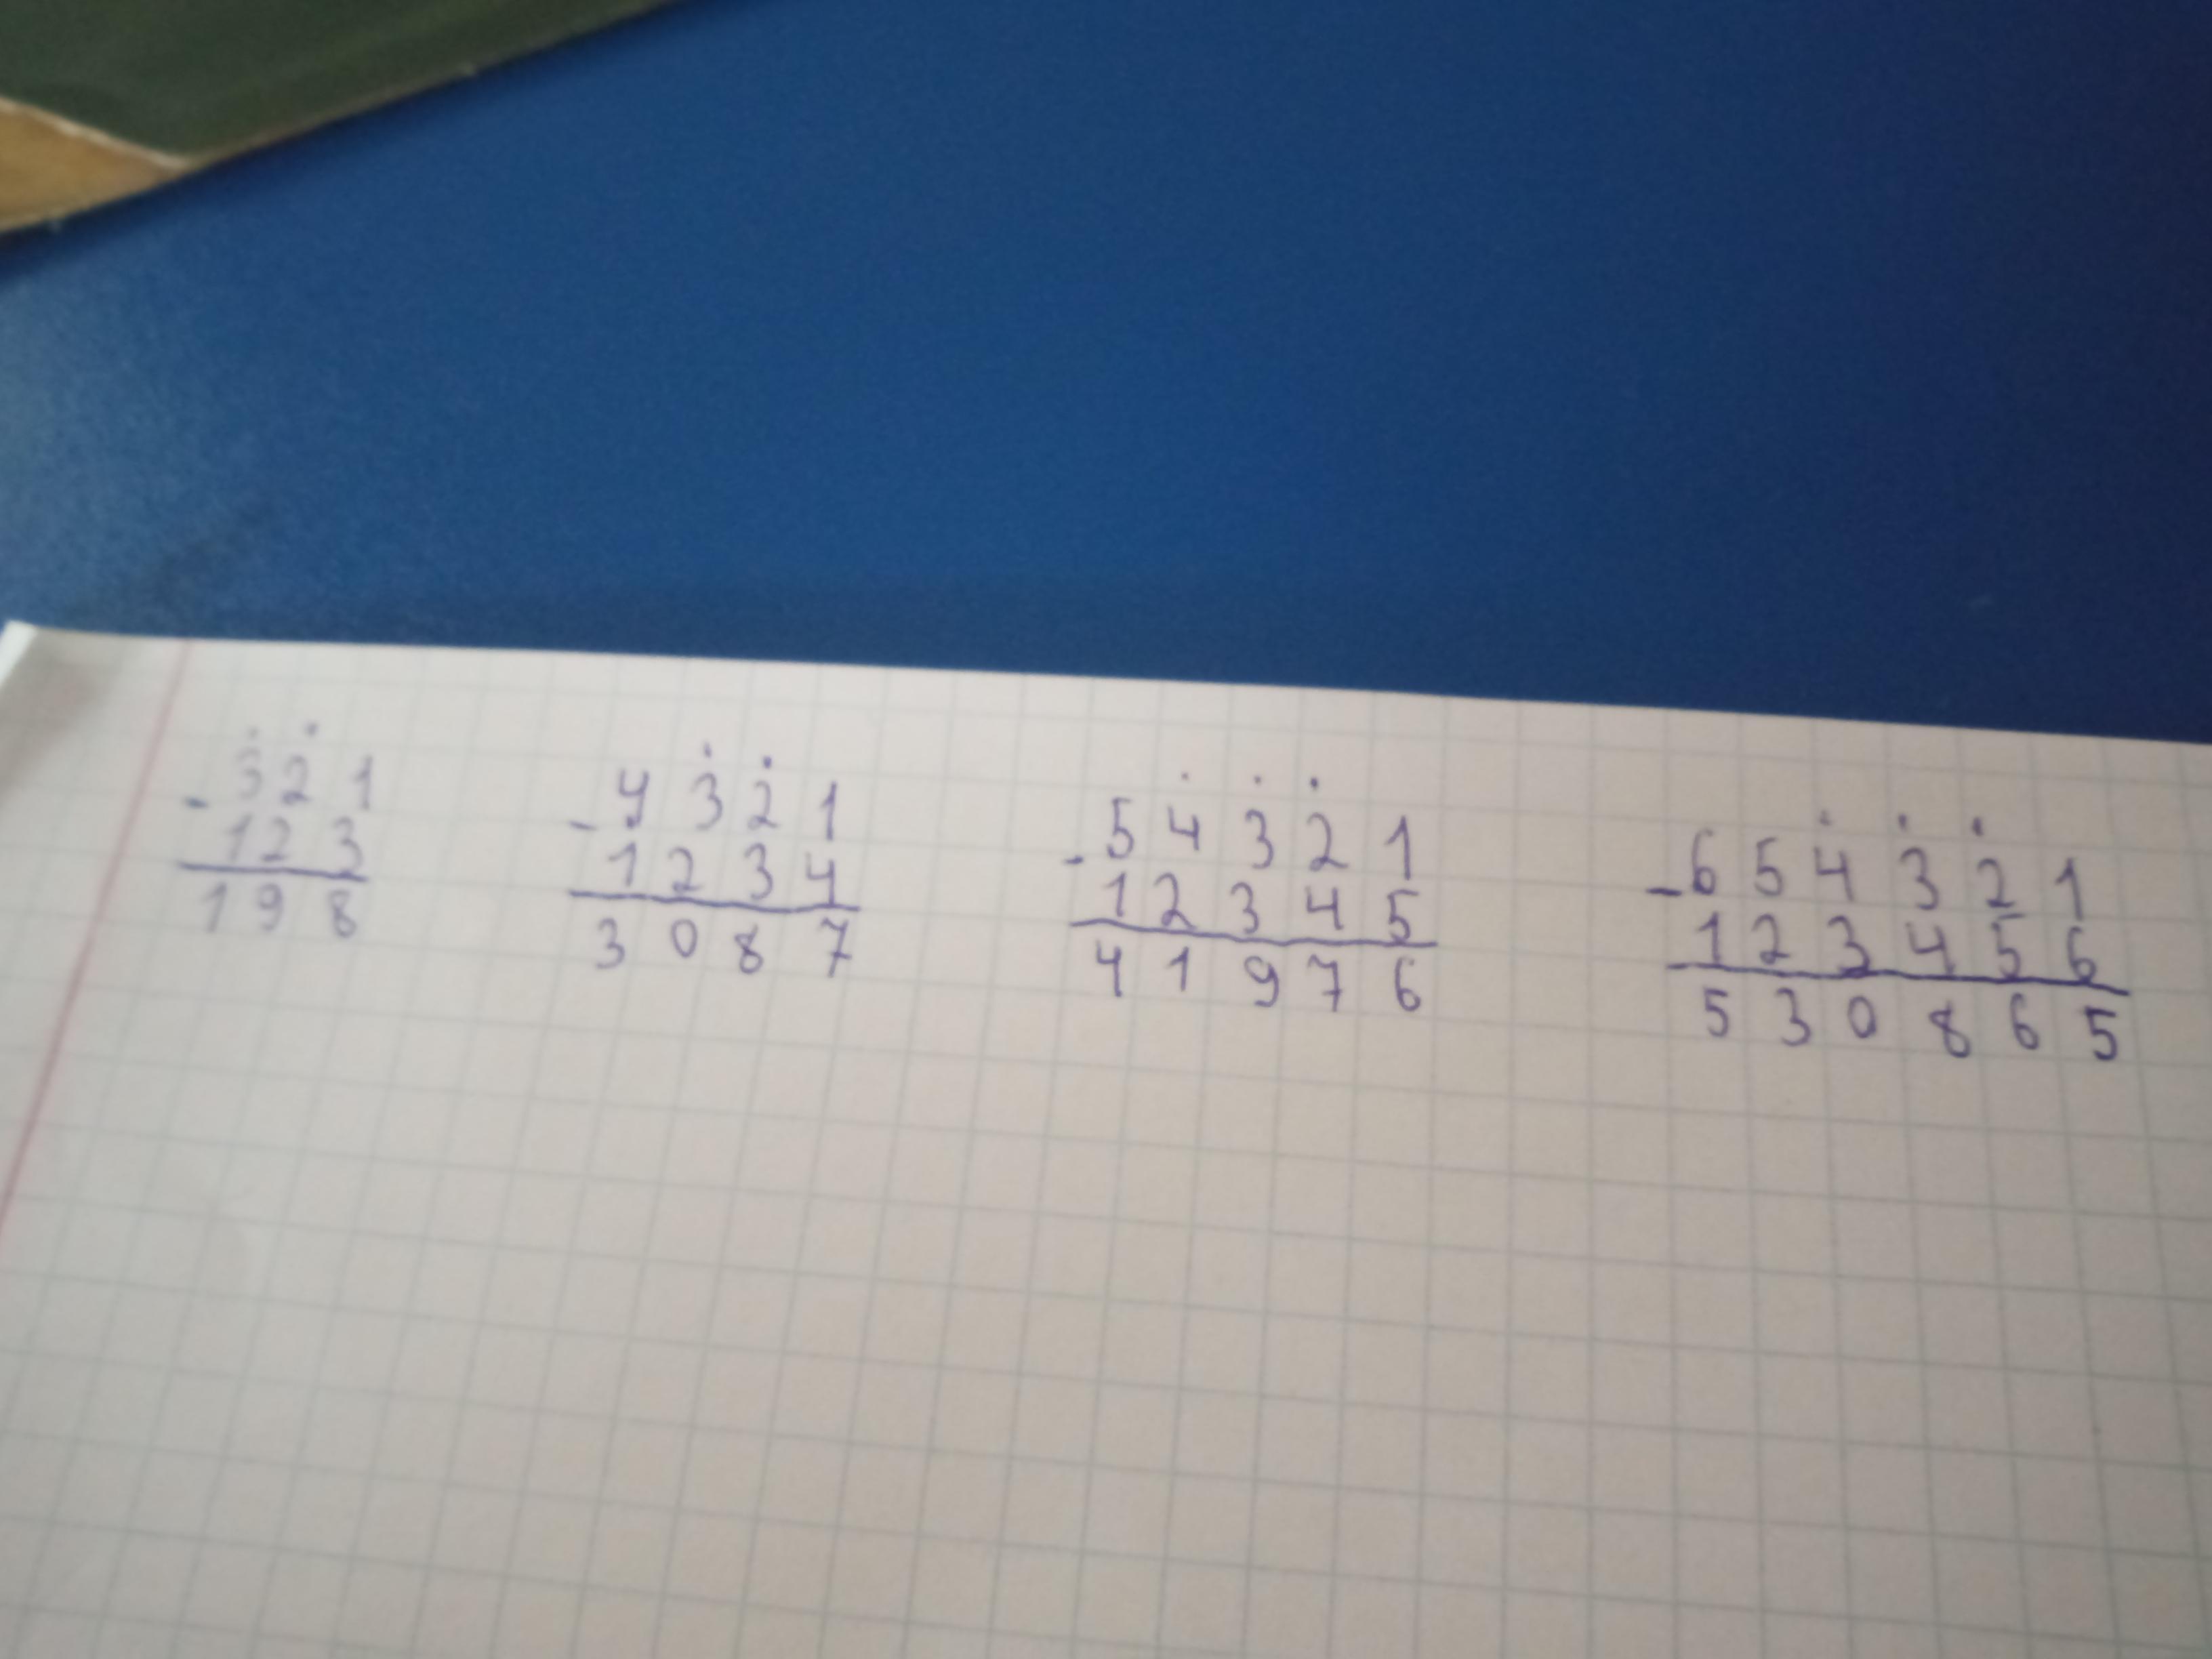 321
- 123
198
4321
- 1234
3087
54321
- 12345
41976
654321
- 123456
530865